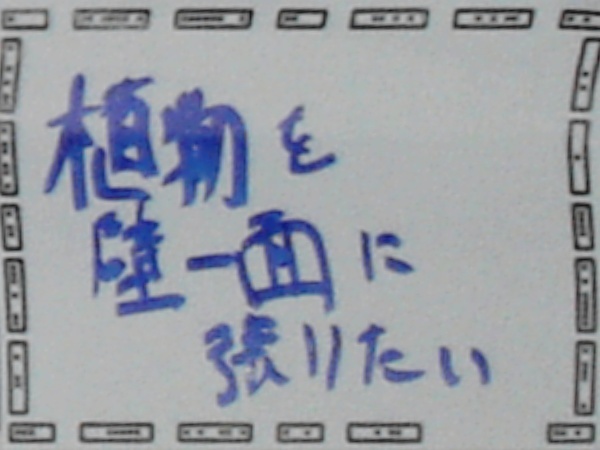 植物を
壁一面に
張りたい